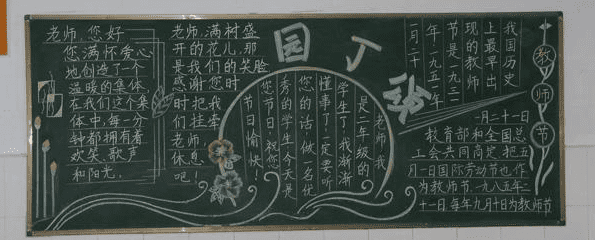 老师,您好
您满怀爱心
地创造了一个
温暖的集体,
在我们这个集
体中,每一分
钟都拥有着
欢笑、歌声
和阳光。
老师,满树盛
开的花儿,那
是我们的笑脸
感谢您时
时把我
们挂牵
老师
休息
吧!
园丁颂
老师,我
是二年级的
学生了,我渐渐
懂事了,一定要听
您的话,做一名优
秀的学生,今天是
您节日,祝您
节日愉快!
我国历史
上最早出
现的教师
节是一九三一
年,一九五一年
教师节
一月二十一日
教育部和全国总
工会共同商定把五
月一日国际劳动节也作
为教师节,一九八五年一月二
十一日每年九月十日为教师节